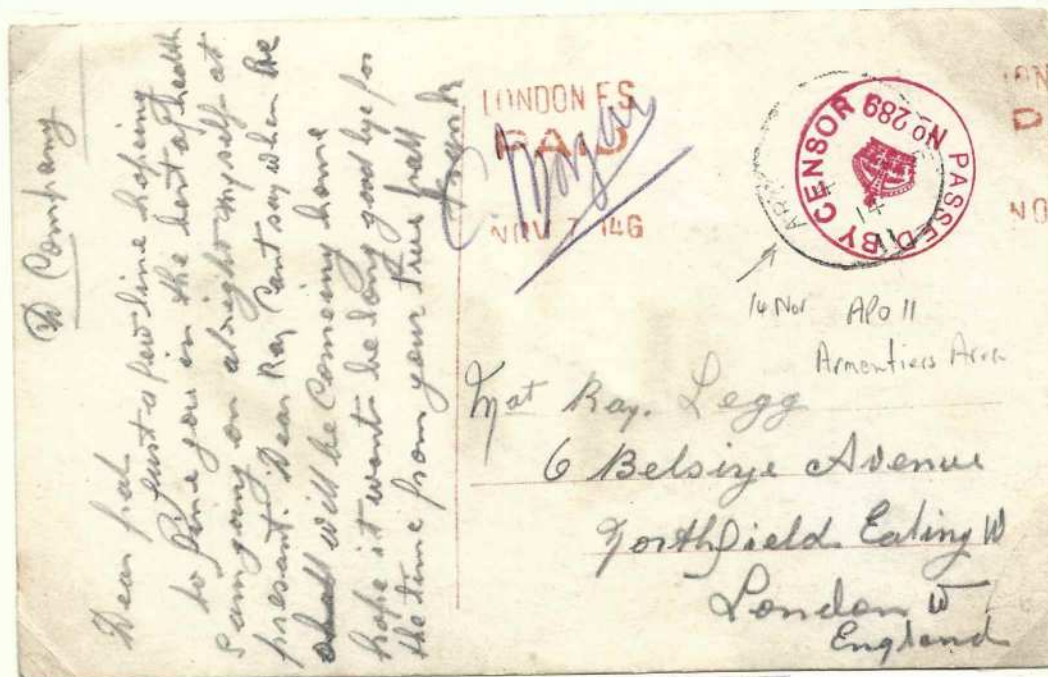 D Company
Dear pal
Just a few line hoping
to fine you in the best of health
I am going on alright myself at
presant. Dear Ray Cant say when the
will be Comeing home
hope it wont be long good bye for
the time from your true pall
Frank
LONDON F.S.
PAID
NOV 7 14
PASSED BY CENSOR No 289
14
14 Nov APO 11
Armentiers Area
Ray. Legg
6 Belsize Avenue
Northfield Ealing W
London W
England
LON
NO